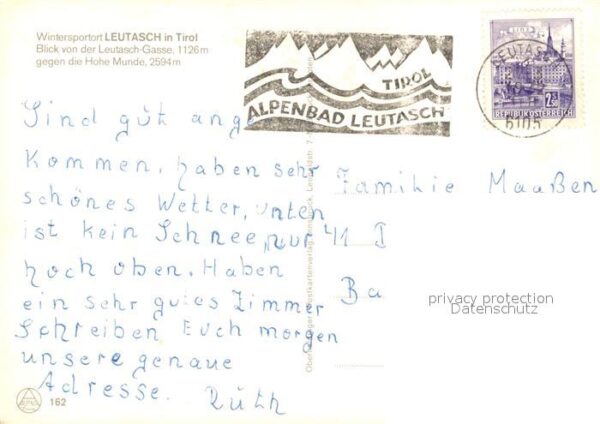 Wintersportort LEUTASCH in Tirol
Blick von der Leutasch-Gasse, 1126m
gegen die Hohe Munde, 2594m
TIROL
ALPENBAD LEUTASCH
LEUTASCH
6105
2.50
REPUBLIK ÖSTERREICH
Sind gut ange
kommen, haben sehr
schönes Wetter, unten
ist kein Schnee, nur
hoch oben. Haben
ein sehr gutes Zimmer
Schreiben Euch morgen
unsere genaue
Adresse. Ruth
Familie Maaßen
41
Ba
privacy protection
Datenschutz
162